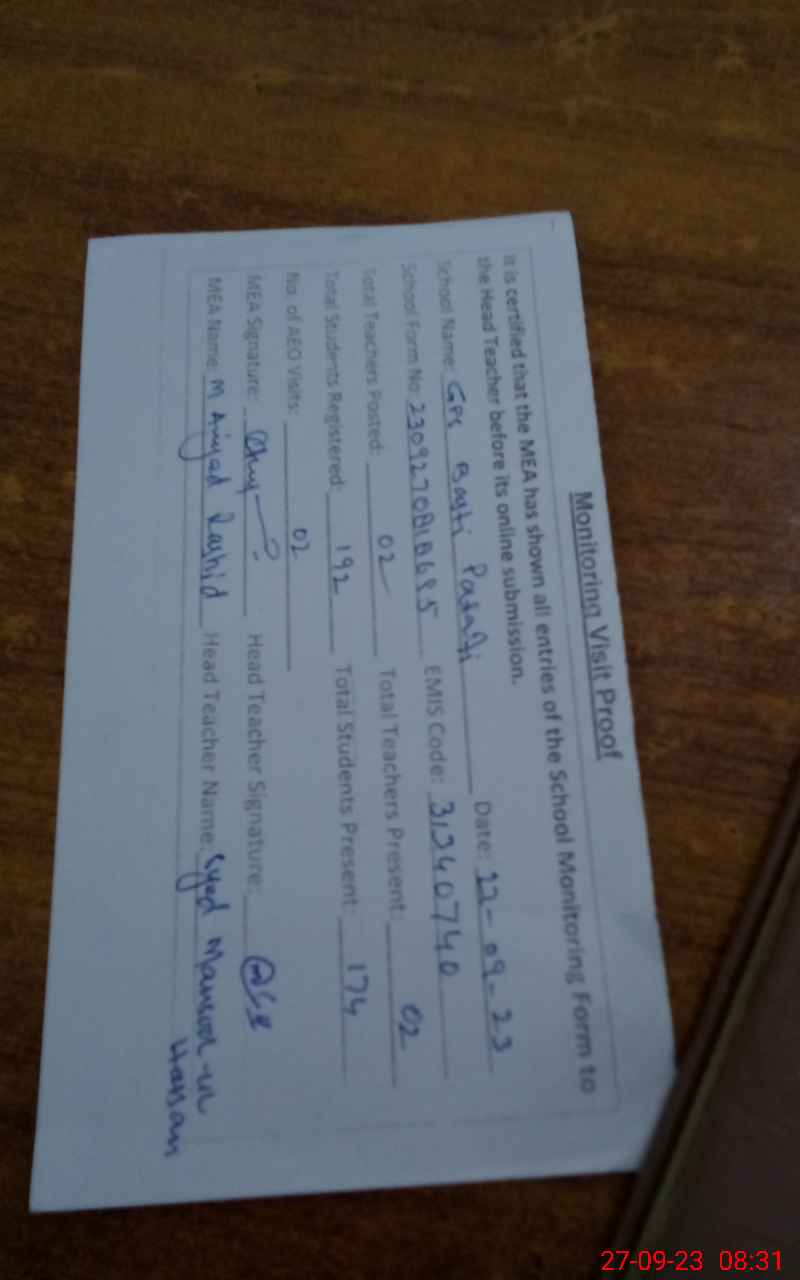 Monitoring Visit Proof
It is certified that the MEA has shown all entries of the School Monitoring Form to
the Head Teacher before its online submission.
School Name: GPS Basti Date: 22-09-23
School Form No: EMIS Code: 31340740
Total Teachers Posted: 02 Total Teachers Present: 02
Total Students Registered: 192 Total Students Present: 174
No. of AEO Visits: 02
MEA Signature: Head Teacher Signature:
MEA Name: M Amjad Rashid Head Teacher Name: Syed Mansoor-ul
Hassan
27-09-23 08:31